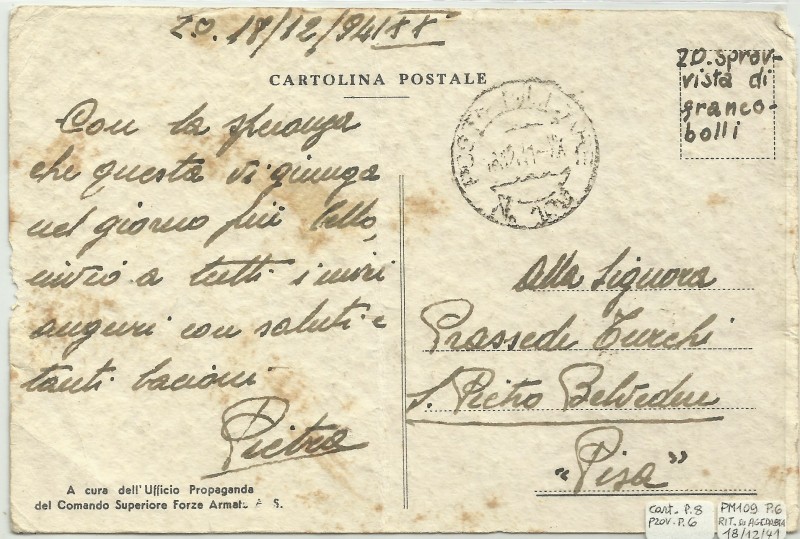 ZO. 18/12/941 XX
CARTOLINA POSTALE
ZO. Sprov-
vista di
franco-
bolli
POSTA MILITARE
N
Con la speranza
che questa vi giunga
nel giorno più bello,
invio a tutti i miei
auguri con saluti e
tanti bacioni
Pietro
A cura dell'Ufficio Propaganda
del Comando Superiore Forze Armate A. S.
Alla Signora
Prassede Turchi
S. Pietro Belvedere
"Pisa"
cart. P.8
PROV. P.6
PM109 P.6
RIT. DI AGEDABIA
18/12/41